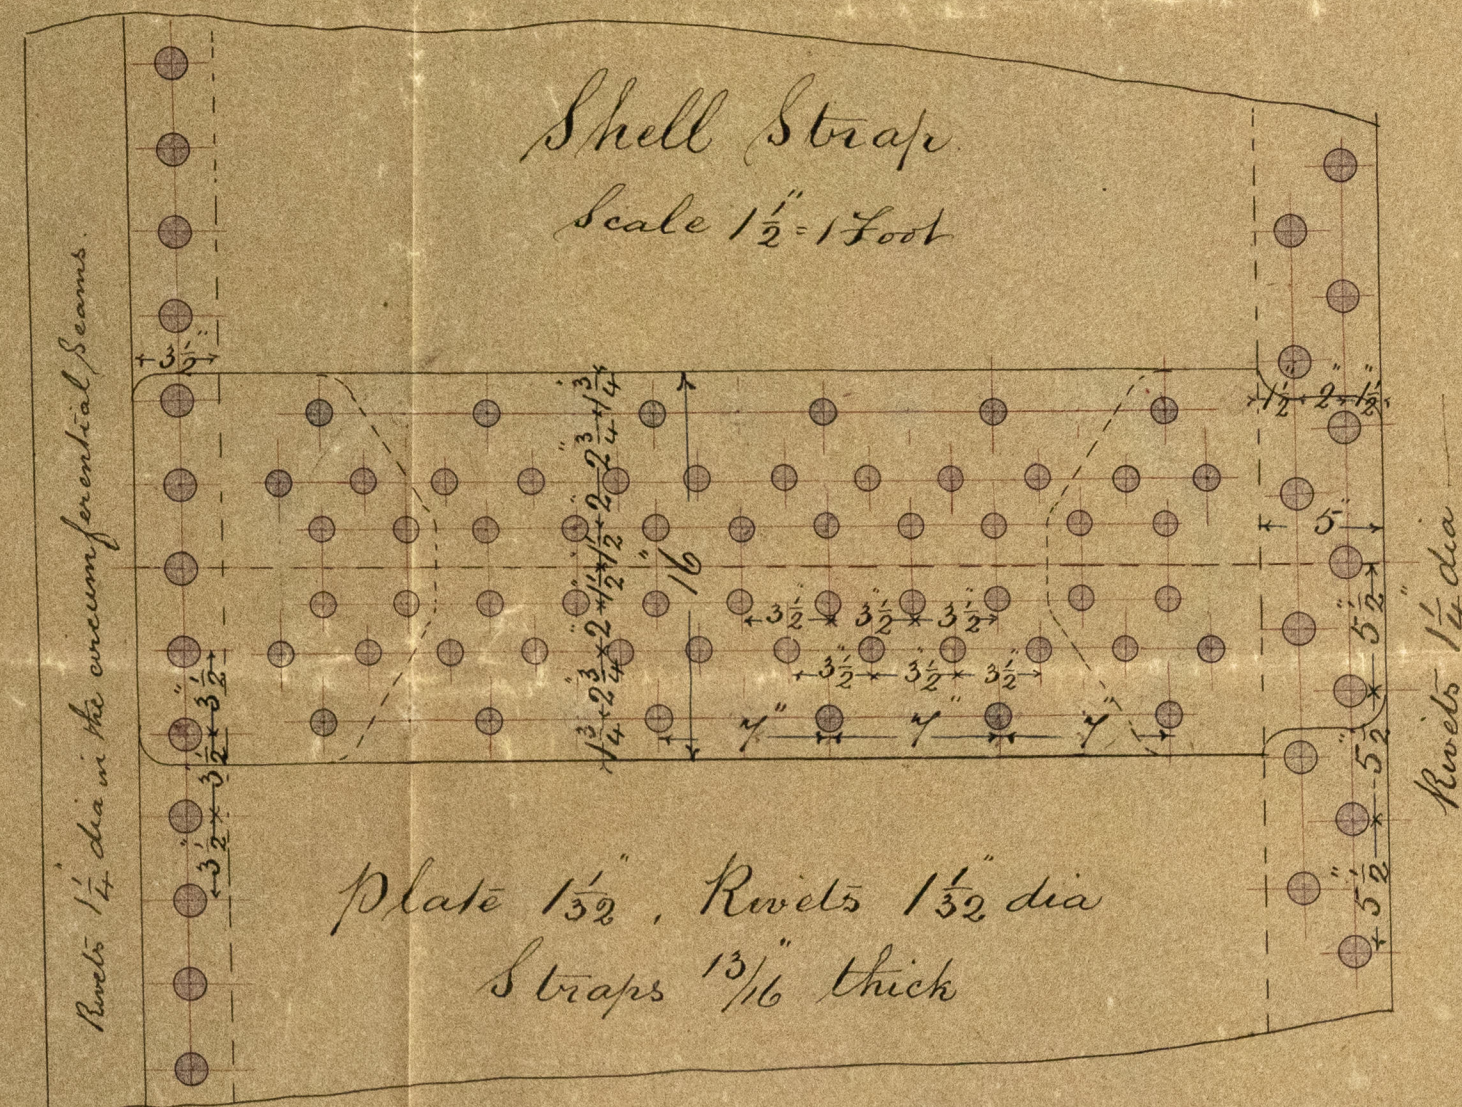 Shell Strap
Scale 1 1/2" = 1 Foot
Rivets 1 1/4" dia in the circumferential Seams.
3 1/2"
1 3/4 × 2 3/4" × 2" × 1 1/2" × 1 1/2" × 2" × 2 3/4" × 1 3/4
16"
1 1/2" × 2" × 1 1/2"
5"
3 1/2" × 3 1/2" × 3 1/2"
3 1/2" × 3 1/2" × 3 1/2"
7" 7" 7"
3 1/2 × 3 1/2 × 3 1/2"
5 1/2" × 5 1/2" × 5 1/2"
Rivets 1 1/4" dia
Plate 1 1/32". Rivets 1 1/32" dia
Straps 13/16" thick